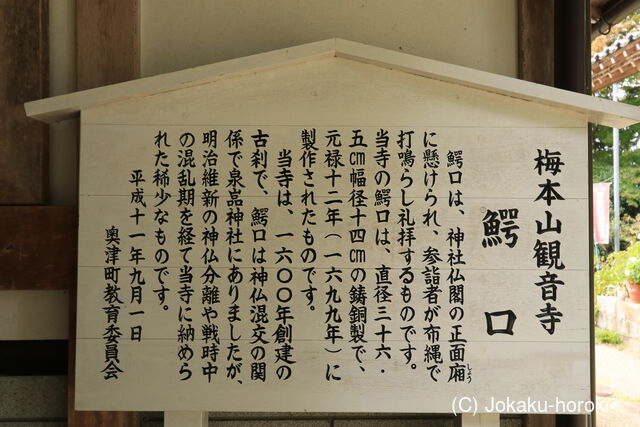 梅本山観音寺
鰐口
鰐口は、神社仏閣の正面廂
しょう
に懸けられ、参詣者が布縄で
打鳴らし礼拝するものです。
当寺の鰐口は、直径三十六・
五㎝幅径十四㎝の鋳銅製で、
元禄十二年(一六九九年)に
製作されたものです。
当寺は、一六〇〇年創建の
古刹で、鰐口は神仏混交の関
係で泉嵓神社にありましたが、
明治維新の神仏分離や戦時中
の混乱期を経て当寺に納めら
れた稀少なものです。
平成十一年九月一日
奥津町教育委員会
(C) Jokaku-horoki